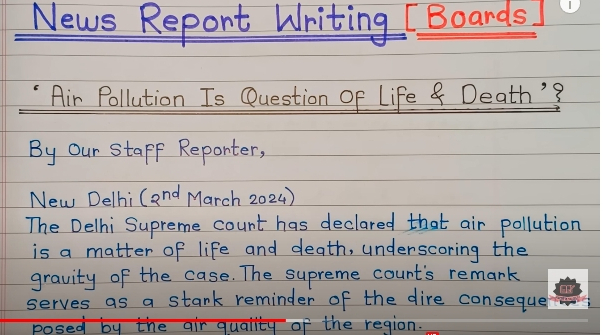 News Report Writing [Boards]
'Air Pollution Is Question Of Life & Death'?
By Our Staff Reporter,
New Delhi (2nd March 2024)
The Delhi Supreme court has declared that air pollution
is a matter of life and death, underscoring the
gravity of the case. The supreme court's remark
serves as a stark reminder of the dire
posed by the air quality of the region.